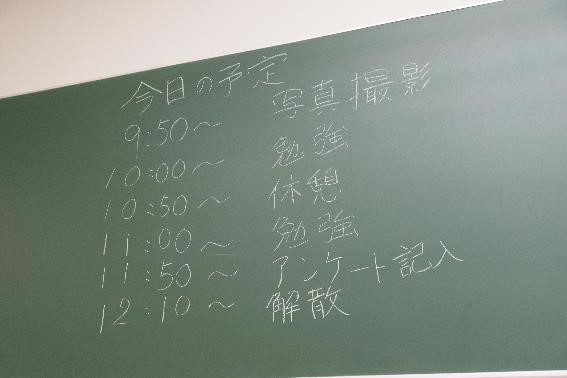 今日の予定
9:50～ 写真撮影
10:00～ 勉強
10:50～ 休憩
11:00～ 勉強
11:50～ アンケート記入
12:10～ 解散